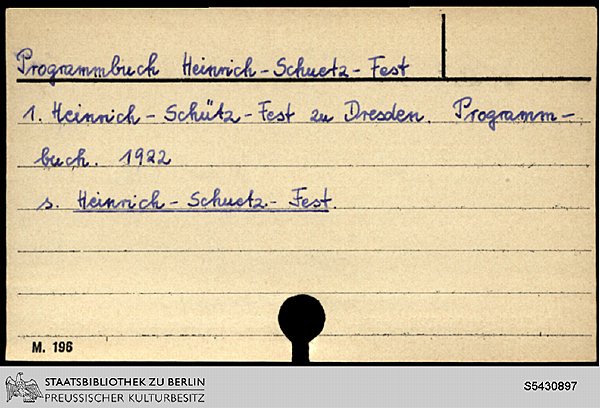 Programmbuch Heinrich-Schuetz-Fest
1. Heinrich-Schütz-Fest zu Dresden. Programm-
buch. 1922
s. Heinrich-Schuetz-Fest.
M. 196
STAATSBIBLIOTHEK ZU BERLIN
PREUSSISCHER KULTURBESITZ
S5430897